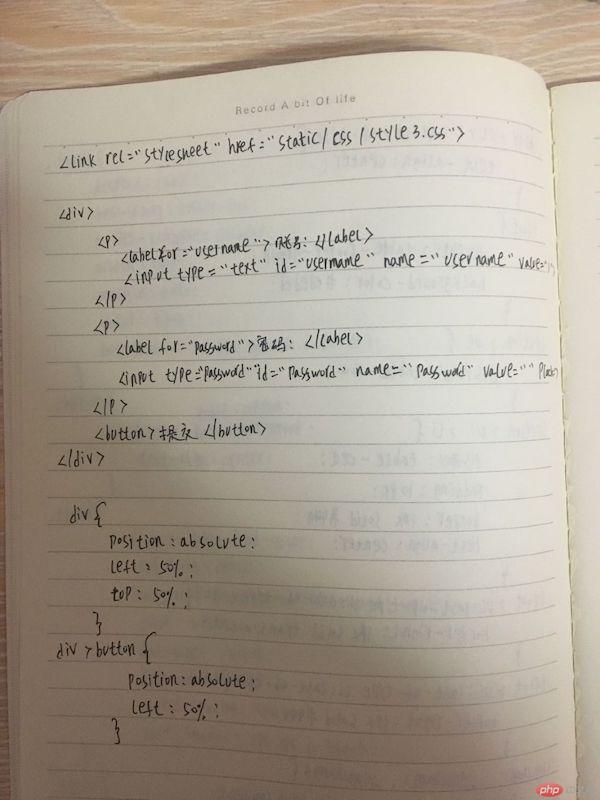 Record A bit Of life
<link rel="stylesheet" href="static/css/style3.css">
<div>
<p>
<label for="username">账号: </label>
<input type="text" id="username" name="username" value="
</p>
<p>
<label for="password">密码: </label>
<input type="password" id="password" name="password" value="" plac
</p>
<button>提交 </button>
</div>
div {
position: absolute;
left: 50%;
top: 50%;
}
div > button {
position: absolute;
left: 50%;
}
php